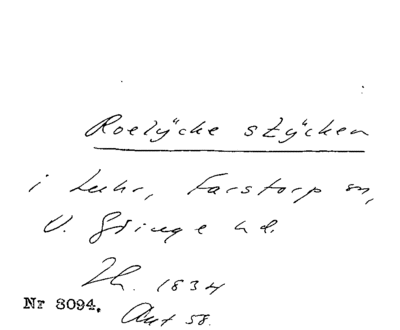 Roelÿcke stÿcken
i Luhr, Farstorp sn,
V. Göinge hd.
Th. 1834
Nr 3094. Aut 58.